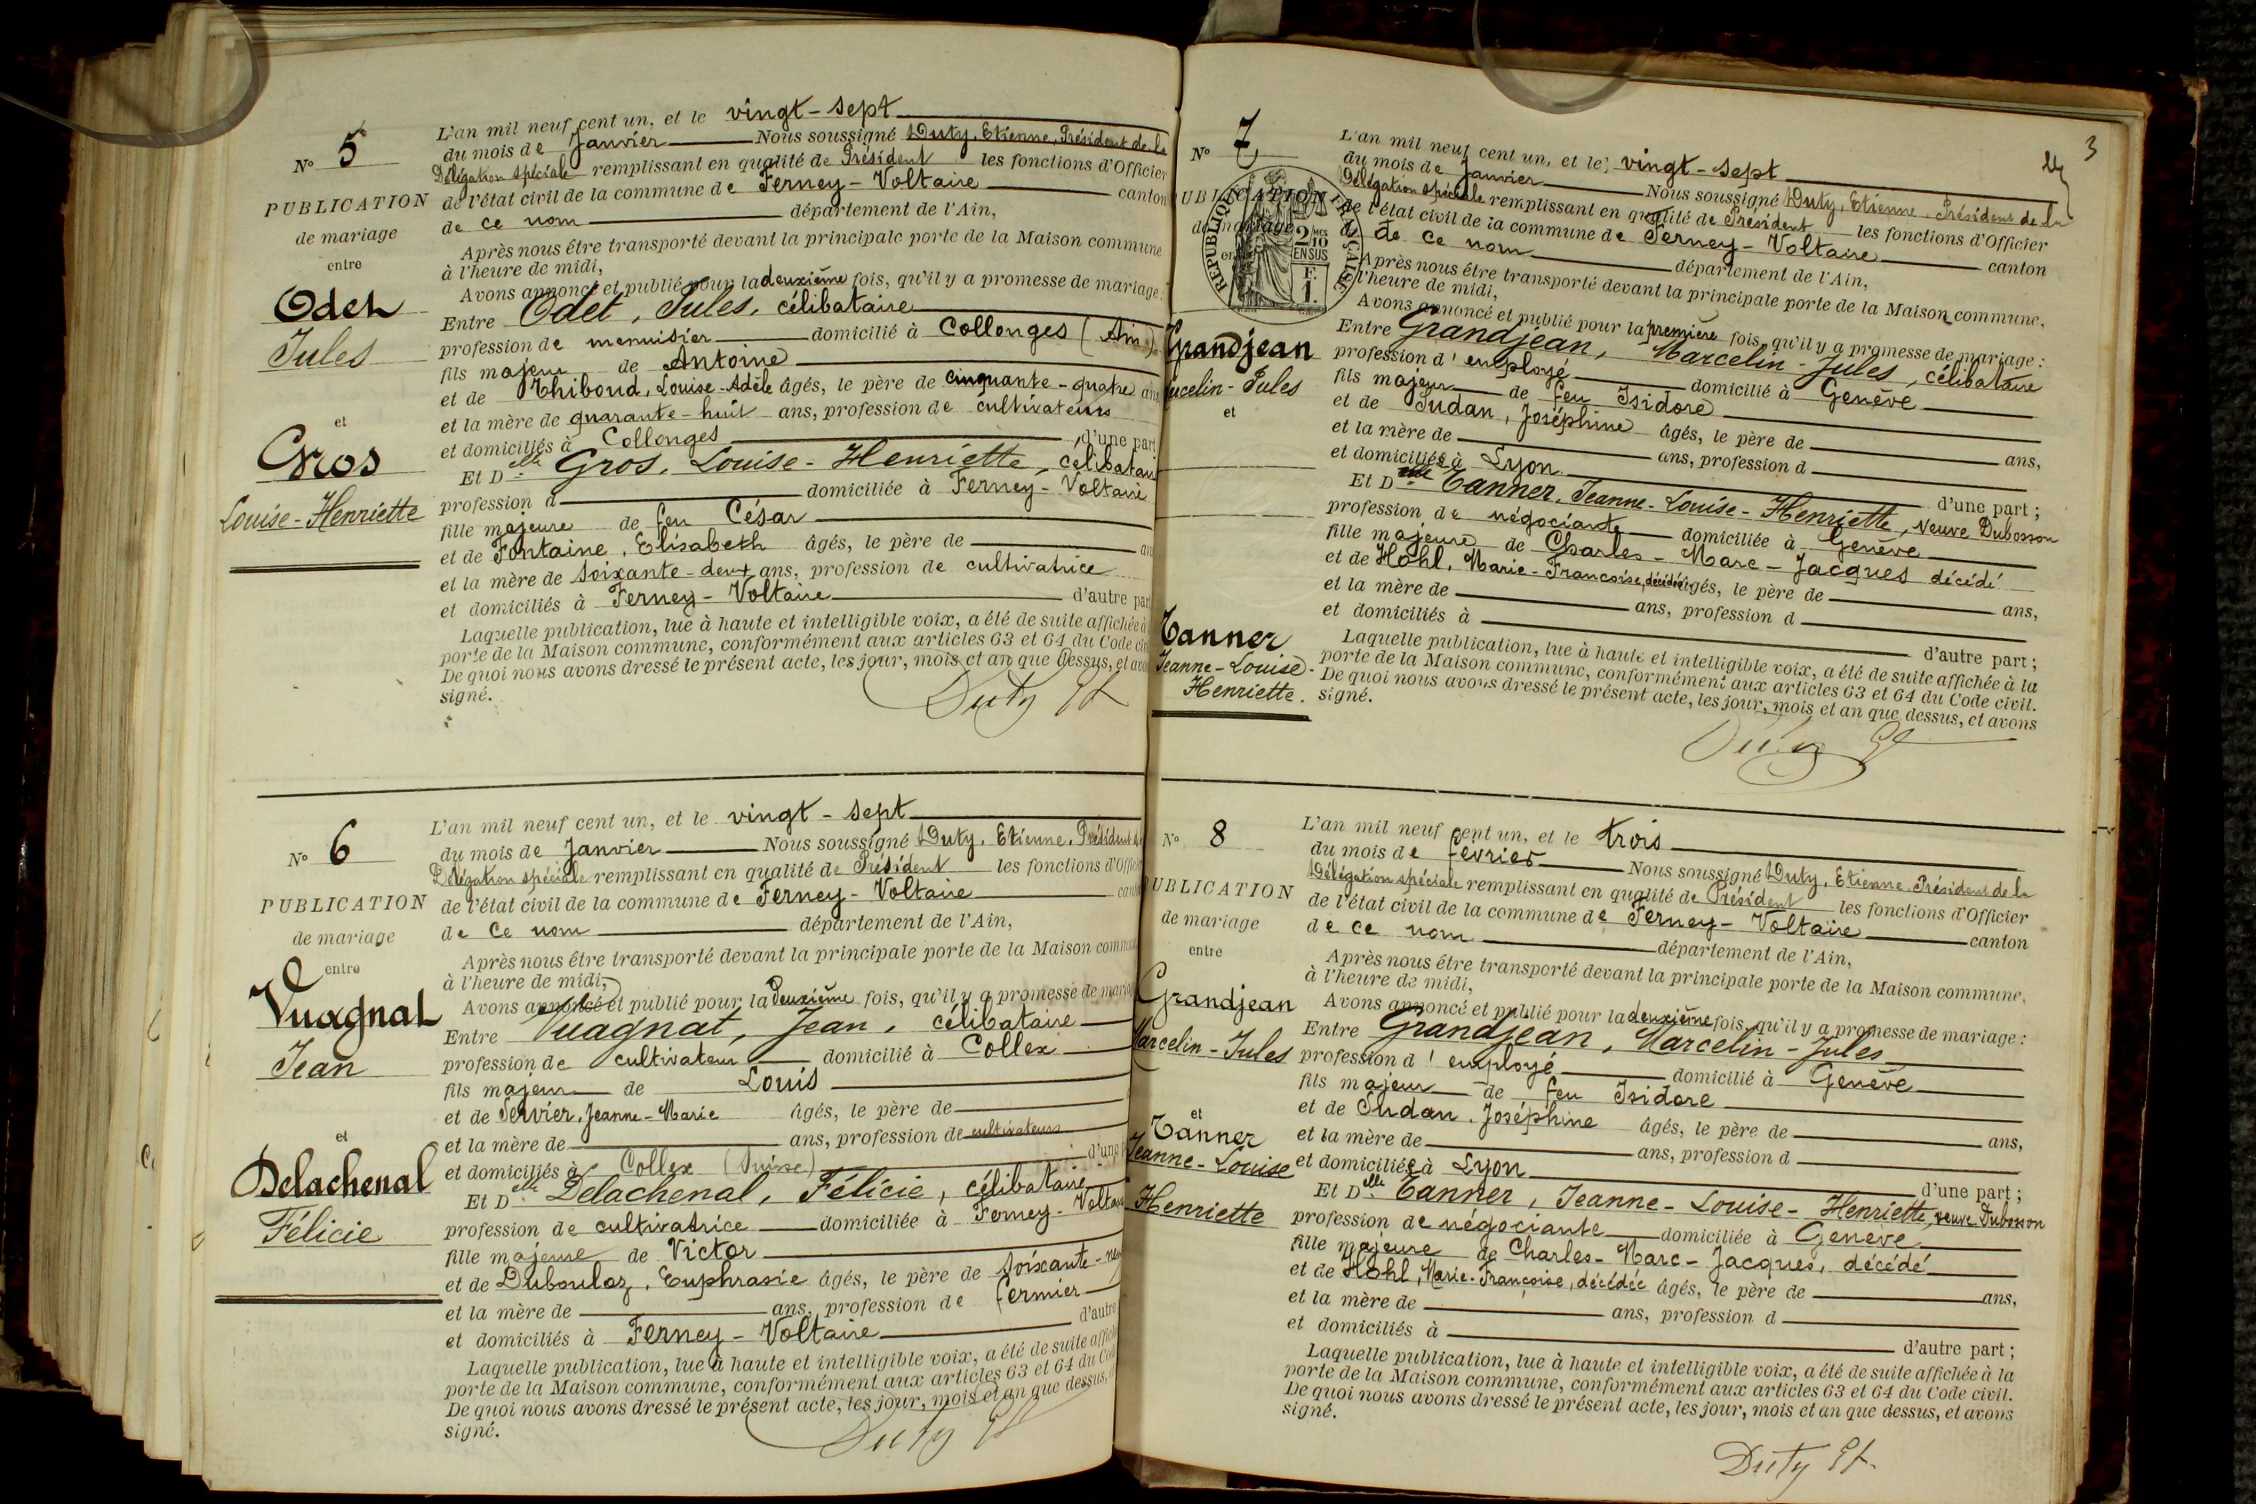 N° 5
PUBLICATION
de mariage
entre
Odet
Jules
et
Gros
Louise-Henriette
L'an mil neuf cent un, et le vingt-sept
du mois de Janvier Nous soussigné Duty, Etienne, Président de la
Délégation spéciale remplissant en qualité de Président les fonctions d'Officier
de l'état civil de la commune de Ferney-Voltaire canton
de ce nom département de l'Ain,
Après nous être transporté devant la principale porte de la Maison commune
à l'heure de midi,
Avons annoncé et publié pour la deuxième fois, qu'il y a promesse de mariage:
Entre Odet, Jules, célibataire
profession de menuisier domicilié à Collonges (Ain)
fils majeur de Antoine
et de Thiboud, Louise-Adèle âgés, le père de cinquante-quatre ans
et la mère de quarante-huit ans, profession de cultivateurs
et domiciliés à Collonges d'une part
Et Delle Gros, Louise-Henriette, célibataire
profession d domiciliée à Ferney-Voltaire
fille majeure de feu César
et de Fontaine, Elisabeth âgés, le père de an
et la mère de soixante-deux ans, profession de cultivatrice
et domiciliés à Ferney-Voltaire d'autre par
Laquelle publication, lue à haute et intelligible voix, a été de suite affichée à
porte de la Maison commune, conformément aux articles 63 et 64 du Code civ
De quoi nous avons dressé le présent acte, les jour, mois et an que dessus, et avo
signé.
Duty Et
N° 6
PUBLICATION
de mariage
entre
Vuagnat
Jean
et
Delachenal
Félicie
L'an mil neuf cent un, et le vingt-sept
du mois de Janvier Nous soussigné Duty, Etienne, Président de
Délégation spéciale remplissant en qualité de Président les fonctions d'Offici
de l'état civil de la commune de Ferney-Voltaire cant
de ce nom département de l'Ain,
Après nous être transporté devant la principale porte de la Maison commun
à l'heure de midi,
Avons annoncé et publié pour la deuxième fois, qu'il y a promesse de maria
Entre Vuagnat, Jean, célibataire
profession de cultivateur domicilié à Collex
fils majeur de Louis
et de Servier, Jeanne-Marie âgés, le père de
et la mère de ans, profession de cultivateurs
et domiciliés à Collex (Suisse) d'une p
Et Delle Delachenal, Félicie, célibataire
profession de cultivatrice domiciliée à Ferney-Voltaire
fille majeure de Victor
et de Duboulaz, Euphrasie âgés, le père de soixante-neu
et la mère de ans, profession de fermier
et domiciliés à Ferney-Voltaire d'autre
Laquelle publication, lue à haute et intelligible voix, a été de suite affich
porte de la Maison commune, conformément aux articles 63 et 64 du Cod
De quoi nous avons dressé le présent acte, les jour, mois et an que dessus,
signé.
Duty Et
3
N° 7
PUBLICATION
de mariage
entre
RÉPUBLIQUE FRANÇAISE
2/10 MES
EN SUS
F.
1.
Grandjean
Marcelin-Jules
et
Tanner
Jeanne-Louise-
Henriette.
L'an mil neuf cent un, et le vingt-sept
du mois de Janvier Nous soussigné Duty, Etienne, Président de la
Délégation spéciale remplissant en qualité de Président les fonctions d'Officier
de l'état civil de la commune de Ferney-Voltaire canton
de ce nom département de l'Ain,
Après nous être transporté devant la principale porte de la Maison commune,
l'heure de midi,
Avons annoncé et publié pour la première fois, qu'il y a promesse de mariage:
Entre Grandjean, Marcelin-Jules, célibataire
profession d'employé domicilié à Genève
fils majeur de feu Isidore
et de Sudan, Joséphine âgés, le père de ans,
et la mère de ans, profession d
et domiciliée à Lyon d'une part;
Et Delle Tanner, Jeanne-Louise-Henriette, veuve Dubosson
profession de négociante domiciliée à Genève
fille majeure de Charles-Marc-Jacques décédé
et de Hohl, Marie-Françoise, décédée âgés, le père de ans,
et la mère de ans, profession d
et domiciliés à d'autre part;
Laquelle publication, lue à haute et intelligible voix, a été de suite affichée à la
porte de la Maison commune, conformément aux articles 63 et 64 du Code civil.
De quoi nous avons dressé le présent acte, les jour, mois et an que dessus, et avons
signé.
Duty Et
N° 8
PUBLICATION
de mariage
entre
Grandjean
Marcelin-Jules
et
Tanner
Jeanne-Louise
Henriette
L'an mil neuf cent un, et le trois
du mois de février Nous soussigné Duty, Etienne, Président de la
Délégation spéciale remplissant en qualité de Président les fonctions d'Officier
de l'état civil de la commune de Ferney-Voltaire canton
de ce nom département de l'Ain,
Après nous être transporté devant la principale porte de la Maison commune,
à l'heure de midi,
Avons annoncé et publié pour la deuxième fois, qu'il y a promesse de mariage:
Entre Grandjean, Marcelin-Jules
profession d'employé domicilié à Genève
fils majeur de feu Isidore
et de Sudan, Joséphine âgés, le père de ans,
et la mère de ans, profession d
et domiciliée à Lyon d'une part;
Et Delle Tanner, Jeanne-Louise-Henriette, veuve Dubosson
profession de négociante domiciliée à Genève
fille majeure de Charles-Marc-Jacques, décédé
et de Hohl, Marie-Françoise, décédée âgés, le père de ans,
et la mère de ans, profession d
et domiciliés à d'autre part;
Laquelle publication, lue à haute et intelligible voix, a été de suite affichée à la
porte de la Maison commune, conformément aux articles 63 et 64 du Code civil.
De quoi nous avons dressé le présent acte, les jour, mois et an que dessus, et avons
signé.
Duty Et.